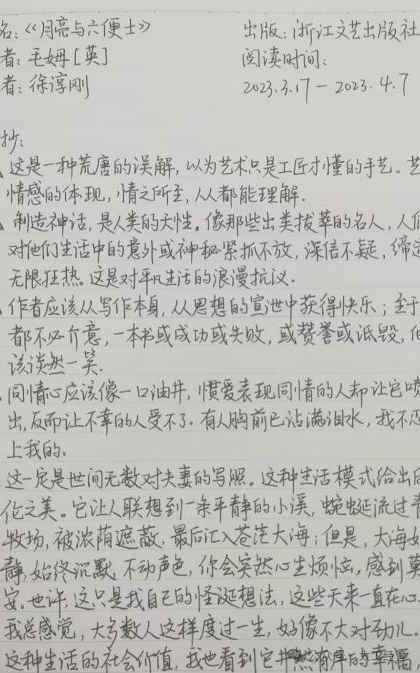 名:《月亮与六便士》 出版:浙江文艺出版社
者:毛姆[英] 阅读时间:
者:徐淳刚 2023.3.17-2023.4.7
抄:
这是一种荒唐的误解,以为艺术只是工匠才懂的手艺。艺
情感的体现,情之所至,人人都能理解.
制造神话,是人类的天性。像那些出类拔萃的名人,人们
对他们生活中的意外或神秘紧抓不放,深信不疑,缔造
无限狂热。这是对平凡生活的浪漫抗议.
作者应该从写作本身,从思想的宣泄中获得快乐;至于
都不必介意,一本书或成功或失败,或赞誉或诋毁,他
该淡然一笑.
同情心应该像一口油井,惯爱表现同情的人却让它喷
出,反而让不幸的人受不了.有人胸前已沾满泪水,我不忍
上我的.
这一定是世间无数对夫妻的写照。这种生活模式给出
伦之美。它让人联想到一条平静的小溪,蜿蜒流过青
牧场,被浓荫遮蔽,最后汇入苍茫大海;但是,大海如
静,始终沉默,不动声色,你会突然心生烦恼,感到莫
安.也许,这只是我自己的怪诞想法,这些天来一直在心
我总感觉,大多数人这样度过一生,好像不大对劲儿.
这种生活的社会价值,我也看到它井然有序的幸福,